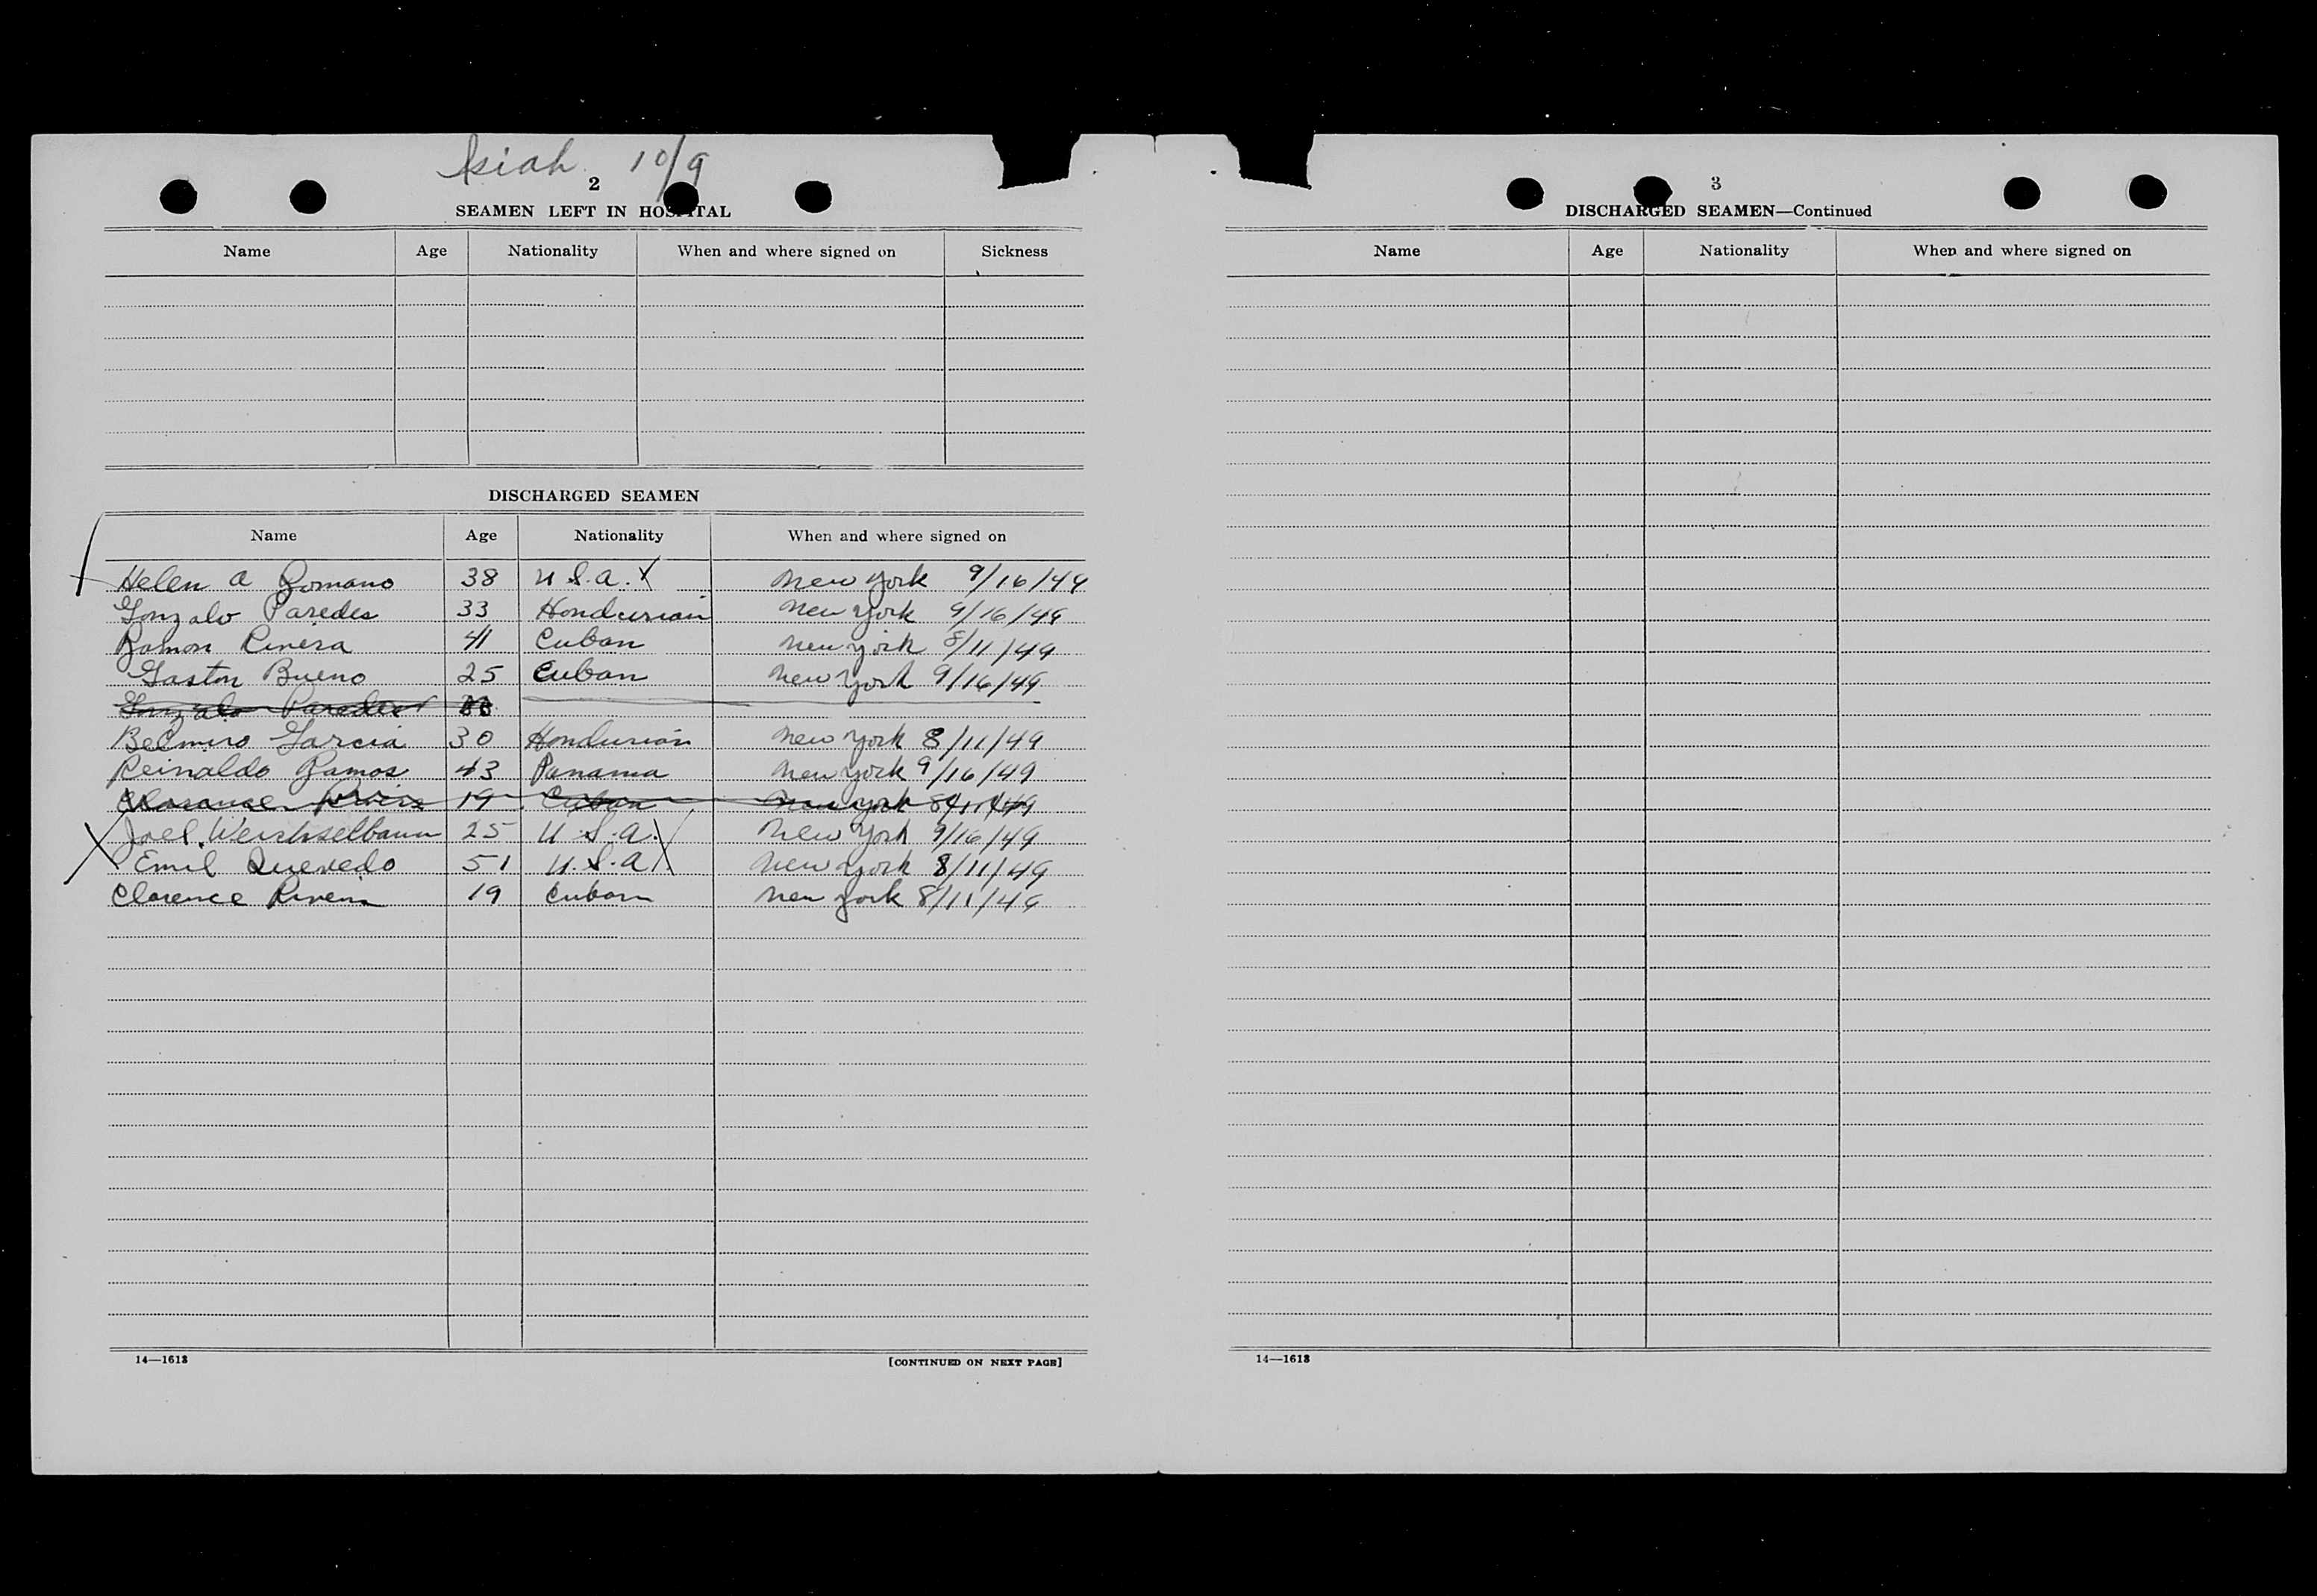 Isiah 10/9
2
SEAMEN LEFT IN HOSPITAL
Name Age Nationality When and where signed on Sickness
DISCHARGED SEAMEN
Name Age Nationality When and where signed on
Helen A Romano 38 U.S.A. X New York 9/16/49
Gonzalo Paredes 33 Hondurian New York 9/16/49
Ramon Rivera 41 Cuban New York 8/11/49
Gaston Bueno 25 Cuban New York 9/16/49
Gonzalo Paredes 33
Belmiro Garcia 30 Hondurian New York 8/11/49
Reinaldo Ramos 43 Panama New York 9/16/49
19 Cuban New York 8/11/49
Joel Weichselbaum 25 U.S.A. New York 9/16/49
Emil Quevedo 51 U.S.A. New York 8/11/49
Clarence Rivera 19 Cuban New York 8/11/49
14—1613 [CONTINUED ON NEXT PAGE]
3
DISCHARGED SEAMEN—Continued
Name Age Nationality When and where signed on
14—1613